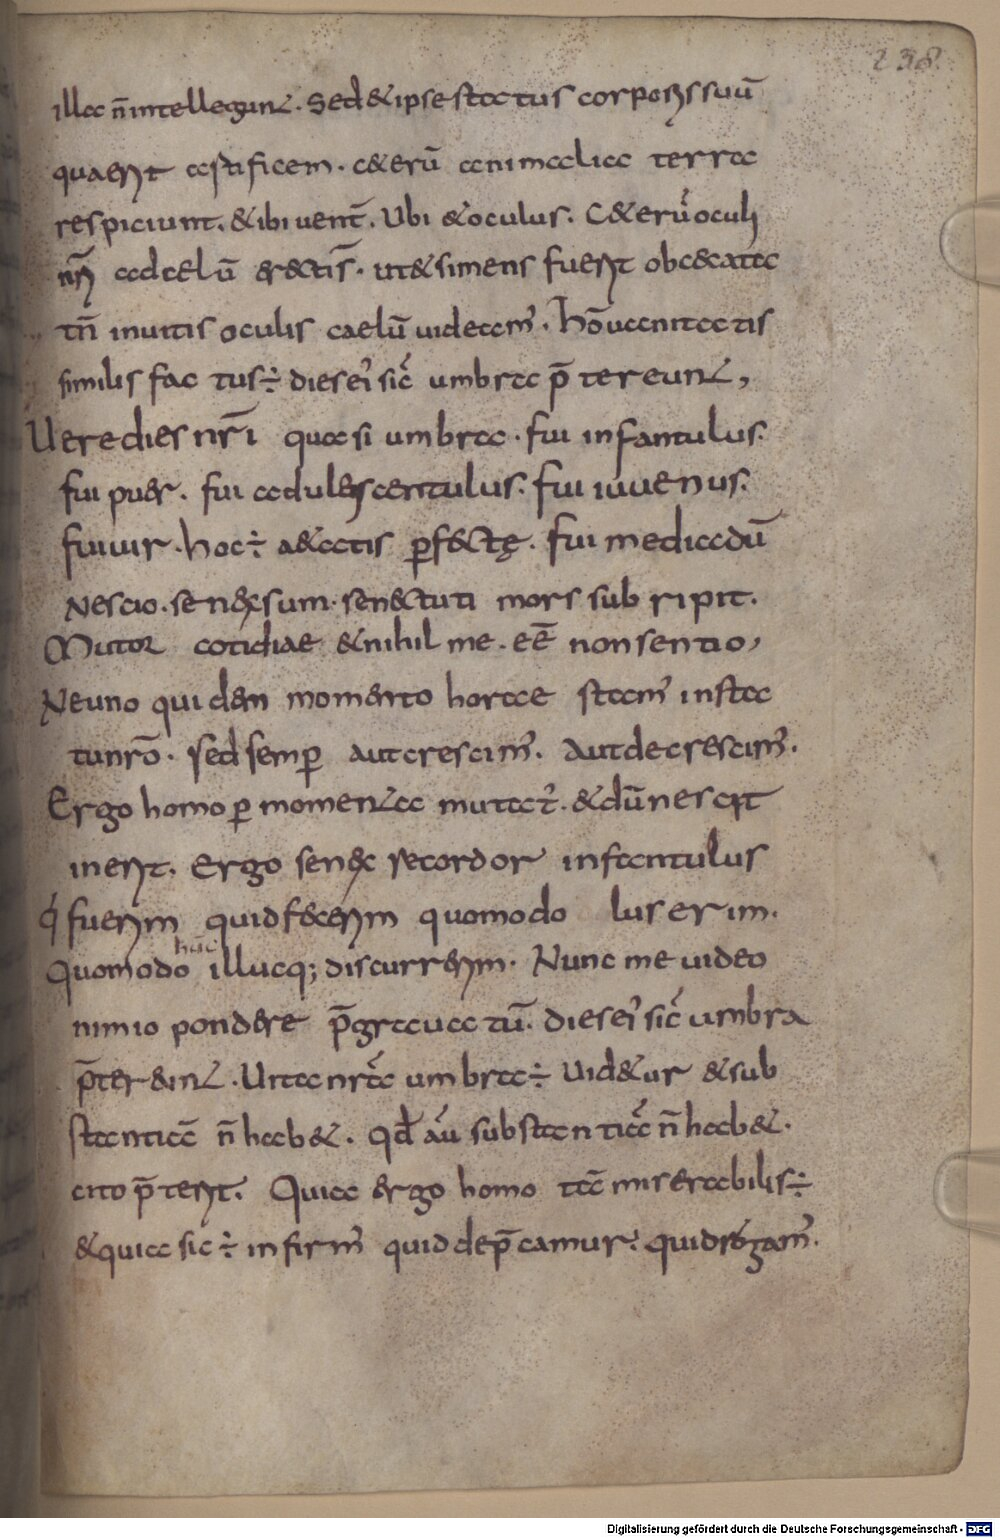 238
illa n̄ intellegunt. Sed & ipse status corporis suū
quaerit artificem. c&erū animalia terrae
respiciunt. & ibi uent̄. Ubi & oculus. C&erū oculi
nr̄i ad celū er&tis̄. ut & si mens fuerit obcecata
tn̄ inuitis oculis caelū uideam'. Hō uanitatis
similis factus ÷ dies ei' sic̄ umbra p̄tereunt,
Uere dies nr̄i quasi umbra. fui infantulus.
fui puer. fui adulescentulus. fui iuuenus.
fui uir. hoc ÷ a&atis ꝑf&tę. fui media dū
Nescio. senex sum. sen&tuti mors subripit.
Mutor cotidiae & nihil me. eē non sentio,
Ne uno quidem momento horae stam' in sta
tu nrō. sed semꝑ aut crescim'. Aut decrescim'.
Ergo homo ꝑ momenta mutat'. & dū nescit
inerit. Ergo senex recordor infantulus
q' fuerim quid fecerim quomodo luserim.
hūc
Quomodo illucq; discurrerim. Nunc me uideo
nimio pondere p̄grauatū. dies ei' sic̄ umbra
p̄tereunt. Uita nrā umbra ÷ uid&ur & sub
stantiā n̄ hab&. Qd̄ aū substantiā n̄ hab&.
cito p̄terit. Quia ergo homo tā miserabilis ÷
& quia sic ÷ infirm' quid dep̄camur. quid rogam'.
Digitalisierung gefördert durch die Deutsche Forschungsgemeinschaft - DFG